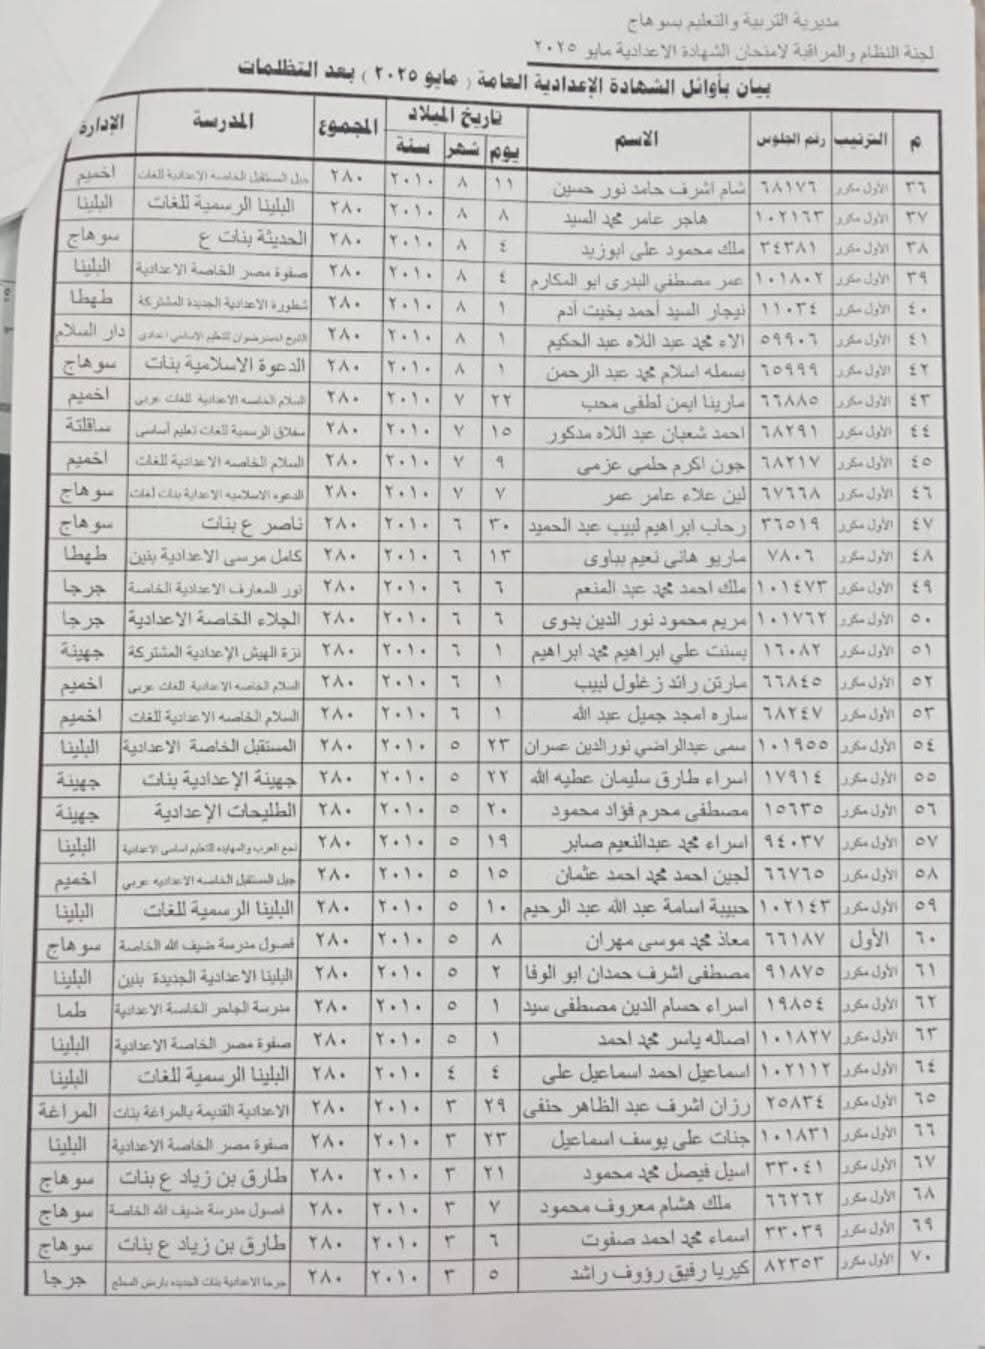 مديرية التربية والتعليم بسوهاج
لجنة النظام والمراقبة لامتحان الشهادة الاعدادية مايو ٢٠٢٥
بيان بأوائل الشهادة الإعدادية العامة ( مايو ٢٠٢٥ ) بعد التظلمات
م الترتيب رقم الجلوس الاسم تاريخ الميلاد المجموع المدرسة الإدارة
يوم شهر سنة
٣٦ الأول مكرر ٦٨١٧٦ شام اشرف حامد نور حسين ١١ ٨ ٢٠١٠ ٢٨٠ جيل المستقبل الخاصة الاعدادية للغات اخميم
٣٧ الأول مكرر ١٠٢١٦٣ هاجر عامر محمد السيد ٨ ٨ ٢٠١٠ ٢٨٠ البلينا الرسمية للغات البلينا
٣٨ الأول مكرر ٣٤٣٨١ ملك محمود على ابوزيد ٤ ٨ ٢٠١٠ ٢٨٠ الحديثة بنات ع سوهاج
٣٩ الأول مكرر ١٠١٨٠٢ عمر مصطفي البدرى ابو المكارم ٤ ٨ ٢٠١٠ ٢٨٠ صفوة مصر الخاصة الاعدادية البلينا
٤٠ الأول مكرر ١١٠٣٤ نيجار السيد أحمد بخيت أدم ١ ٨ ٢٠١٠ ٢٨٠ شطورة الاعدادية الجديدة المشتركة طهطا
٤١ الأول مكرر ٥٩٩٠٦ الاء محمد عبد اللاه عبد الحكيم ١ ٨ ٢٠١٠ ٢٨٠ للتعليم الاساسي اعدادى دار السلام
٤٢ الأول مكرر ٦٥٩٩٩ بسمله اسلام محمد عبد الرحمن ١ ٨ ٢٠١٠ ٢٨٠ الدعوة الاسلامية بنات سوهاج
٤٣ الأول مكرر ٦٦٨٨٥ مارينا ايمن لطفى محب ٢٢ ٧ ٢٠١٠ ٢٨٠ السلام الخاصه الاعدادية للغات عربى اخميم
٤٤ الأول مكرر ٦٨٢٩١ احمد شعبان عبد اللاه مدكور ١٥ ٧ ٢٠١٠ ٢٨٠ سفلاق الرسمية للغات تعليم أساسى ساقلتة
٤٥ الأول مكرر ٦٨٢١٧ جون اكرم حلمى عزمى ٩ ٧ ٢٠١٠ ٢٨٠ السلام الخاصه الاعدادية للغات اخميم
٤٦ الأول مكرر ٦٧٦٦٨ لين علاء عامر عمر ٧ ٧ ٢٠١٠ ٢٨٠ الدعوه الاسلاميه الاعداية بنات لغات سوهاج
٤٧ الأول مكرر ٣٦٥١٩ رحاب ابراهيم لبيب عبد الحميد ٣٠ ٦ ٢٠١٠ ٢٨٠ ناصر ع بنات سوهاج
٤٨ الأول مكرر ٧٨٠٦ ماريو هاني نعيم بباوى ١٣ ٦ ٢٠١٠ ٢٨٠ كامل مرسى الاعدادية بنين طهطا
٤٩ الأول مكرر ١٠١٤٧٣ ملك احمد محمد عبد المنعم ٦ ٦ ٢٠١٠ ٢٨٠ نور المعارف الاعدادية الخاصة جرجا
٥٠ الأول مكرر ١٠١٧٦٢ مريم محمود نور الدين بدوى ٦ ٦ ٢٠١٠ ٢٨٠ الجلاء الخاصة الاعدادية جرجا
٥١ الأول مكرر ١٦٠٨٢ بسنت علي ابراهيم محمد ابراهيم ١ ٦ ٢٠١٠ ٢٨٠ نزة الهيش الإعدادية المشتركة جهينة
٥٢ الأول مكرر ٦٦٨٤٥ مارتن رائد زغلول لبيب ١ ٦ ٢٠١٠ ٢٨٠ السلام الخاصه الاعدادية للغات عربى اخميم
٥٣ الأول مكرر ٦٨٢٤٧ ساره امجد جميل عبد الله ١ ٦ ٢٠١٠ ٢٨٠ السلام الخاصه الاعدادية للغات اخميم
٥٤ الأول مكرر ١٠١٩٥٥ سمى عبدالراضي نورالدين عسران ٢٣ ٥ ٢٠١٠ ٢٨٠ المستقبل الخاصة الاعدادية البلينا
٥٥ الأول مكرر ١٧٩١٤ اسراء طارق سليمان عطيه الله ٢٢ ٥ ٢٠١٠ ٢٨٠ جهينة الإعدادية بنات جهينة
٥٦ الأول مكرر ١٥٦٣٥ مصطفى محرم فؤاد محمود ٢٠ ٥ ٢٠١٠ ٢٨٠ الطليحات الإعدادية جهينة
٥٧ الأول مكرر ٩٤٠٣٧ اسراء محمد عبدالنعيم صابر ١٩ ٥ ٢٠١٠ ٢٨٠ نجع العرب والمهايده للتعليم اساسى الاعدادية البلينا
٥٨ الأول مكرر ٦٦٧٦٥ لجين احمد محمد احمد عثمان ١٥ ٥ ٢٠١٠ ٢٨٠ جيل المستقبل الخاصه الاعداديه عربي اخميم
٥٩ الأول مكرر ١٠٢١٤٣ حبيبة اسامة عبد الله عبد الرحيم ١٠ ٥ ٢٠١٠ ٢٨٠ البلينا الرسمية للغات البلينا
٦٠ الأول ٦٦١٨٧ معاذ محمد موسى مهران ٨ ٥ ٢٠١٠ ٢٨٠ فصول مدرسة ضيف الله الخاصة سوهاج
٦١ الأول مكرر ٩١٨٧٥ مصطفى اشرف حمدان ابو الوفا ٢ ٥ ٢٠١٠ ٢٨٠ البلينا الاعدادية الجديدة بنين البلينا
٦٢ الأول مكرر ١٩٨٥٤ اسراء حسام الدين مصطفى سيد ١ ٥ ٢٠١٠ ٢٨٠ مدرسة الجاحر الخاصة الاعدادية طما
٦٣ الأول مكرر ١٠١٨٢٧ اصاله ياسر محمد احمد ١ ٥ ٢٠١٠ ٢٨٠ صفوة مصر الخاصة الاعدادية البلينا
٦٤ الأول مكرر ١٠٢١١٢ اسماعيل احمد اسماعيل على ٤ ٤ ٢٠١٠ ٢٨٠ البلينا الرسمية للغات البلينا
٦٥ الأول مكرر ٢٥٨٣٤ رزان اشرف عبد الظاهر حنفى ٢٩ ٣ ٢٠١٠ ٢٨٠ الاعدادية القديمة بالمراغة بنات المراغة
٦٦ الأول مكرر ١٠١٨٣١ جنات على يوسف اسماعيل ٢٣ ٣ ٢٠١٠ ٢٨٠ صفوة مصر الخاصة الاعدادية البلينا
٦٧ الأول مكرر ٣٣٠٤١ اسيل فيصل محمد محمود ٢١ ٣ ٢٠١٠ ٢٨٠ طارق بن زياد ع بنات سوهاج
٦٨ الأول مكرر ٦٦٢٦٢ ملك هشام معروف محمود ٧ ٣ ٢٠١٠ ٢٨٠ فصول مدرسة ضيف الله الخاصة سوهاج
٦٩ الأول مكرر ٣٣٠٣٩ اسماء محمد احمد صفوت ٦ ٣ ٢٠١٠ ٢٨٠ طارق بن زياد ع بنات سوهاج
٧٠ الأول مكرر ٨٢٣٥٣ كيريا رفيق رؤوف راشد ٥ ٣ ٢٠١٠ ٢٨٠ جرجا الاعدادية بنات الجديده بارض المطبع جرجا